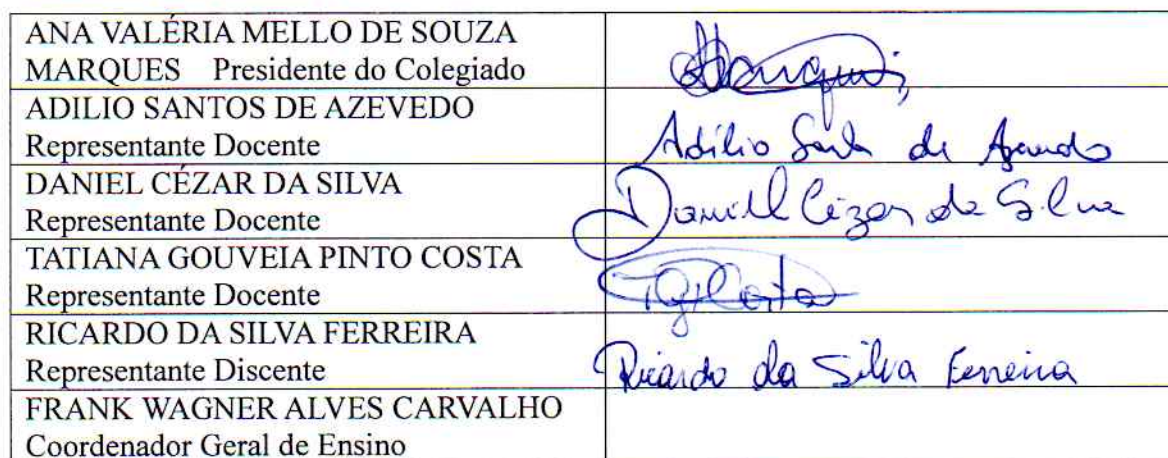 ANA VALÉRIA MELLO DE SOUZA
MARQUES Presidente do Colegiado
ADILIO SANTOS DE AZEVEDO
Representante Docente
Adílio de
DANIEL CÉZAR DA SILVA
Representante Docente
Daniell Cézar da Silva
TATIANA GOUVEIA PINTO COSTA
Representante Docente
RICARDO DA SILVA FERREIRA
Representante Discente
Ricardo da Silva Ferreira
FRANK WAGNER ALVES CARVALHO
Coordenador Geral de Ensino